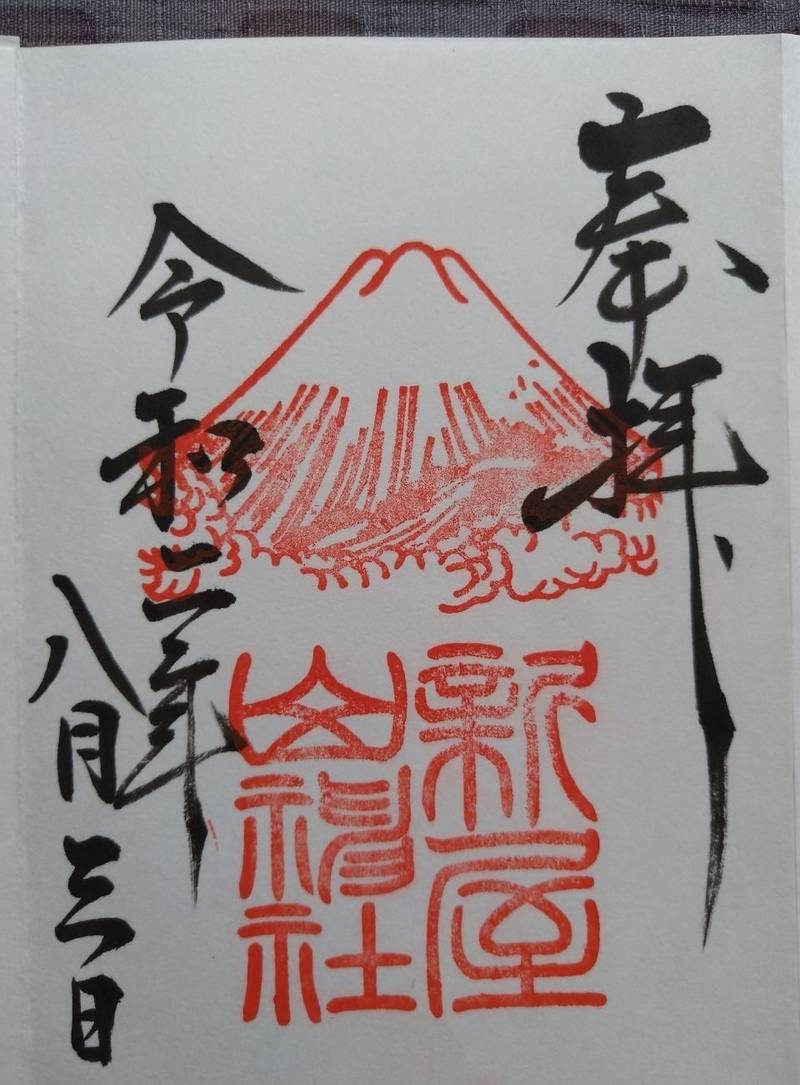 奉拝
新屋
山神社
令和二年
八月三日